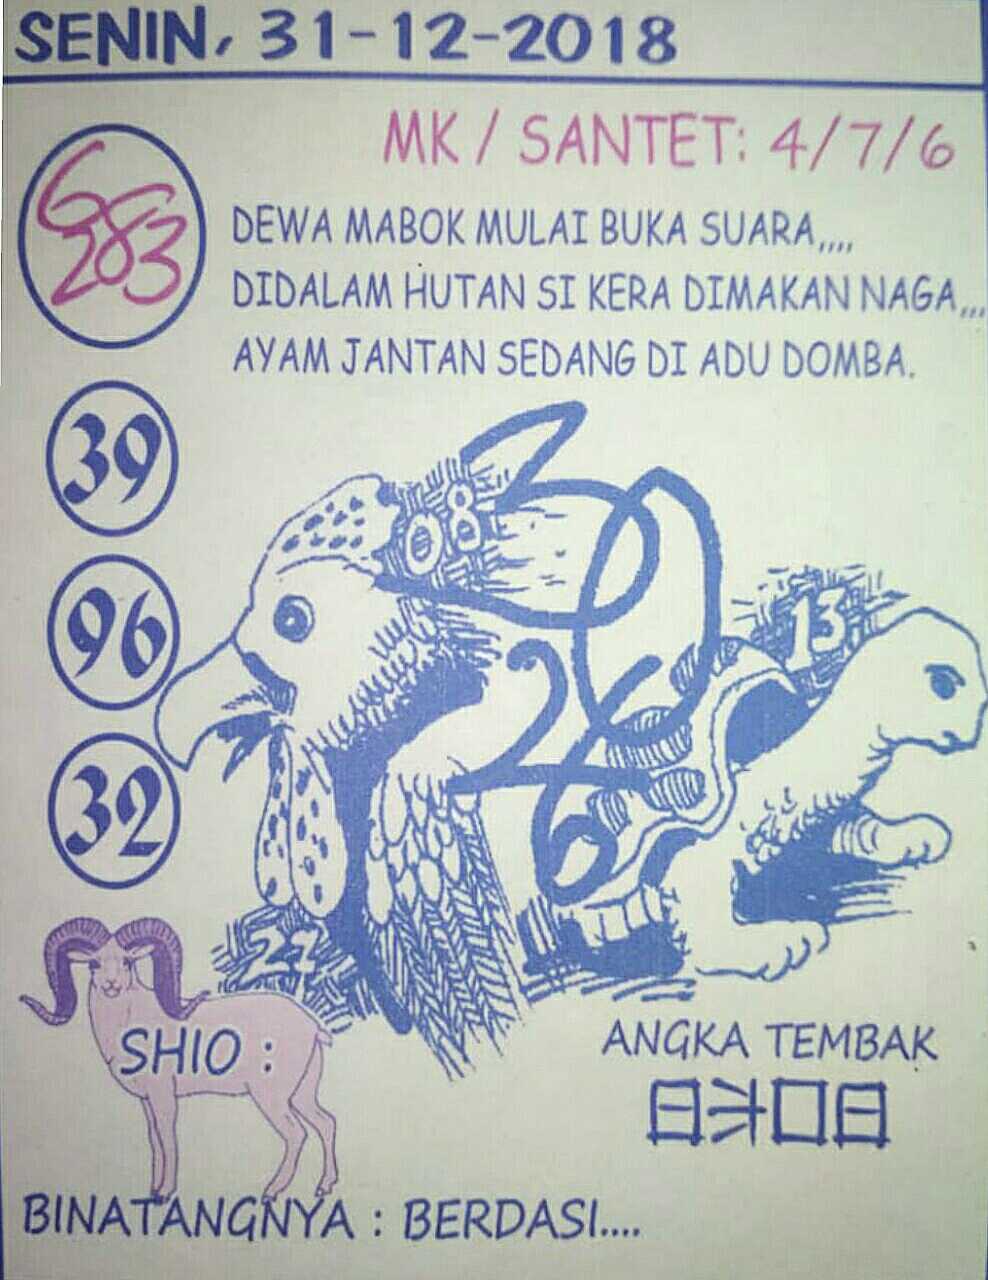 SENIN, 31-12-2018
MK / SANTET: 4/7/6
6
283
DEWA MABOK MULAI BUKA SUARA,,,,
DIDALAM HUTAN SI KERA DIMAKAN NAGA,,,
AYAM JANTAN SEDANG DI ADU DOMBA.
39
08
13
96
2
6
32
27
SHIO :
ANGKA TEMBAK
BINATANGNYA : BERDASI....